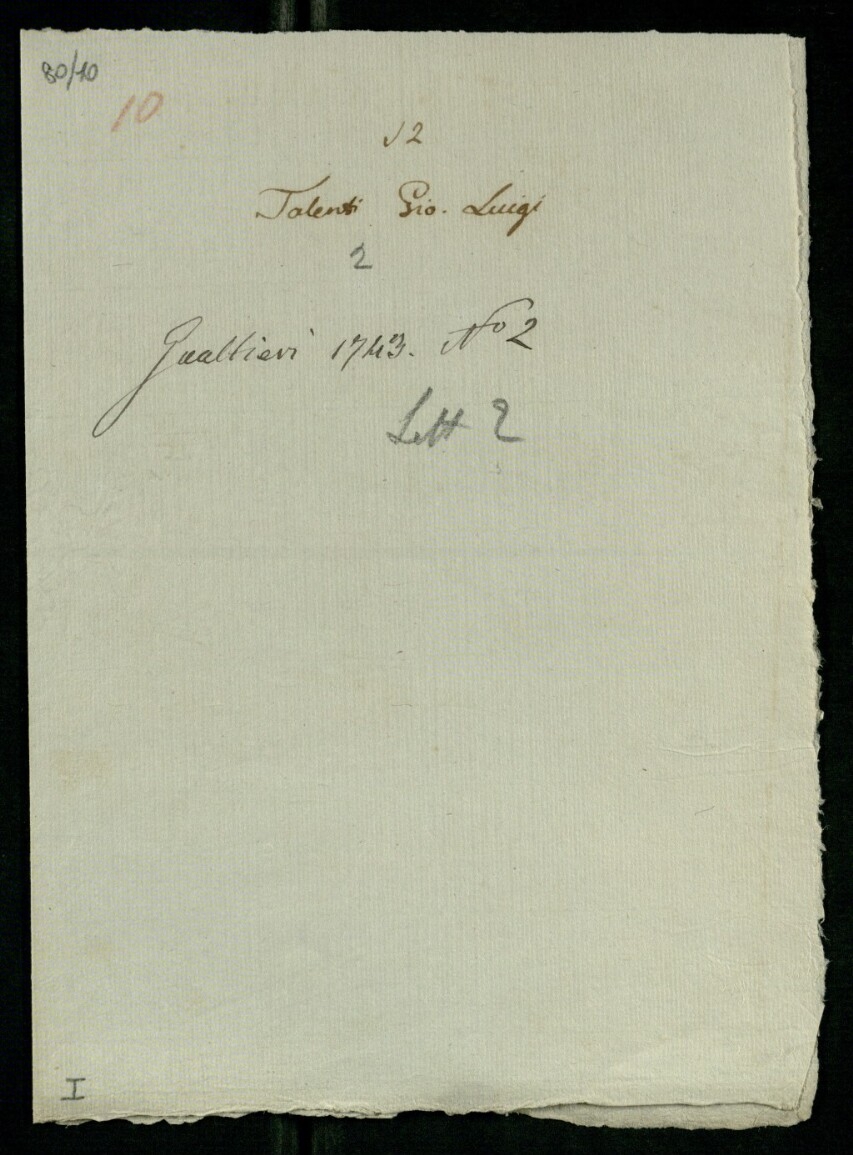 80/10
10
√2
Talenti Gio. Luigi
2
Gualtieri 1743. No 2
Lett 2
I